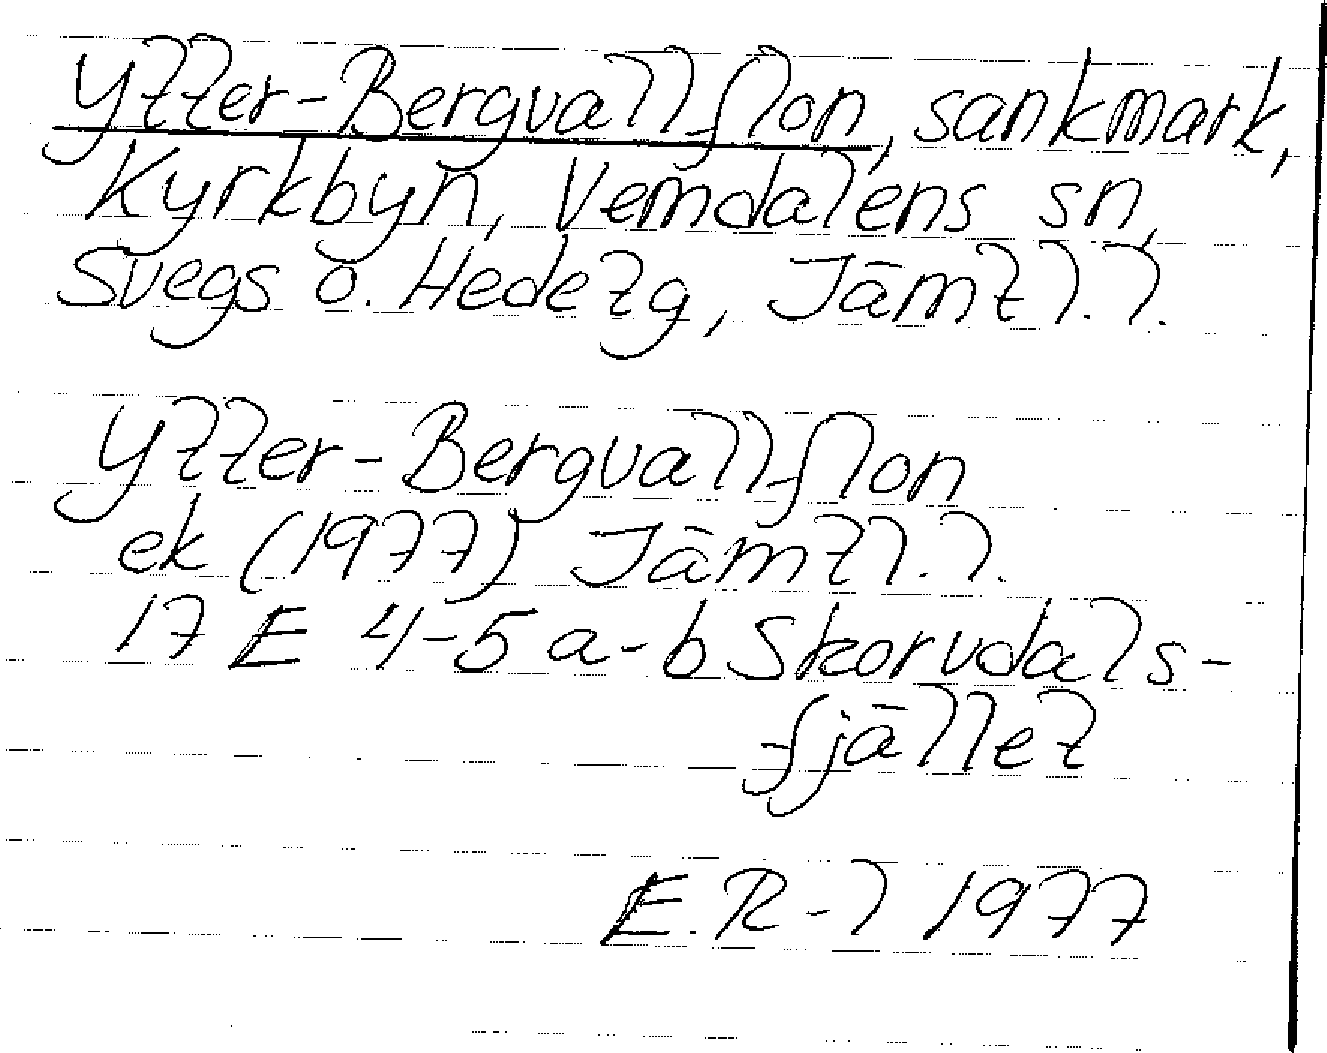 Ytter-Bergvallflon, sankmark,
Kyrkbyn, Vemdalens sn,
Svegs o. Hede tg, Jämtl.l.
Ytter-Bergvallflon
ek (1977) Jämtl.l.
17 E 4-5 a-b Skorvdals-
fjället
E. R-l 1977